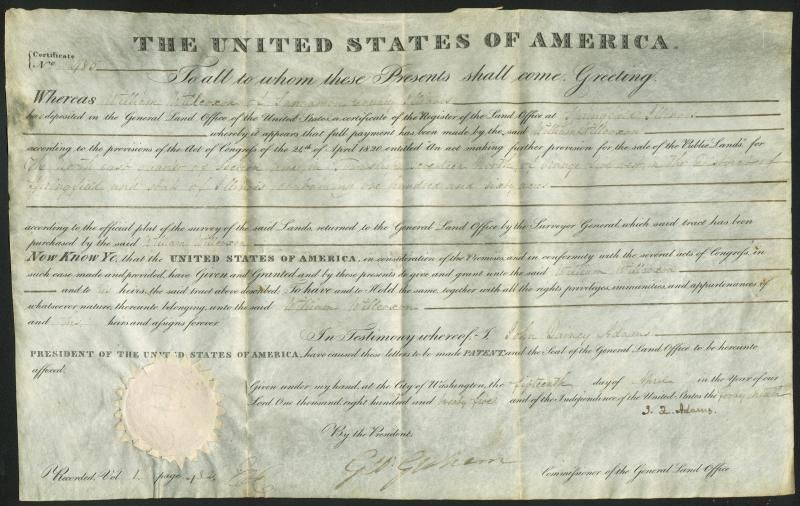 THE UNITED STATES OF AMERICA.
Certificate
No.
To all to whom these Presents shall come, Greeting:
Whereas William Willcoxon of Sangamon County Illinois
has deposited in the General Land Office of the United States, a certificate of the Register of the Land Office at Springfield Illinois
whereby it appears that full payment has been made by the said William Willcoxon
according to the provisions of the Act of Congress of the 24th of April 1820, entitled "An act making further provision for the sale of the Public Lands," for
the north east quarter of section in Township seventeen North of Range in the district of
Springfield and state of Illinois containing one hundred and sixty acres
according to the official plat of the survey of the said Lands, returned to the General Land Office by the Surveyor General, which said tract has been
purchased by the said William Willcoxon
Now Know Ye, that the UNITED STATES OF AMERICA, in consideration of the Promises, and in conformity with the several acts of Congress, in
such case made and provided, have Given and Granted, and by these presents do give and grant, unto the said William Willcoxon
and to his heirs, the said tract above described, To have and to Hold the same, together with all the rights, privileges, immunities, and appurtenances of
whatsoever nature, thereunto belonging, unto the said William Willcoxon
and his heirs and assigns forever
In Testimony whereof, I, John Quincy Adams
PRESIDENT OF THE UNITED STATES OF AMERICA, have caused these letters to be made PATENT, and the Seal of the General Land Office to be hereunto
affixed.
Given under my hand, at the City of Washington, the fifteenth day of April in the Year of our
Lord One thousand, eight hundred and twenty five and of the Independence of the United States the forty ninth
J. Q. Adams.
By the President.
Geo. Graham Commissioner of the General Land Office
Recorded, Vol. 1. page